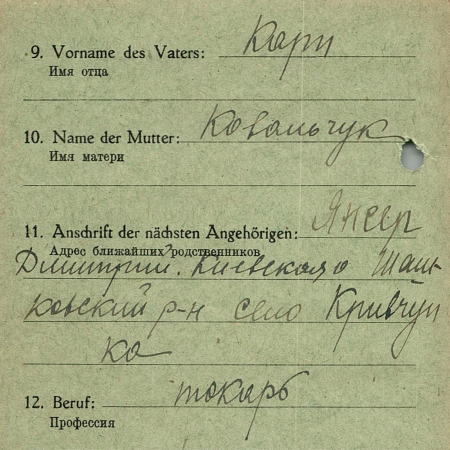 9. Vorname des Vaters: Карп
Имя отца
10. Name der Mutter: Ковальчук
Имя матери
11. Anschrift der nächsten Angehörigen:
Адрес ближайших родственников
Дмитрий. Киевская о
ковский р-н село Кривчун
ка
12. Beruf: токарь
Профессия